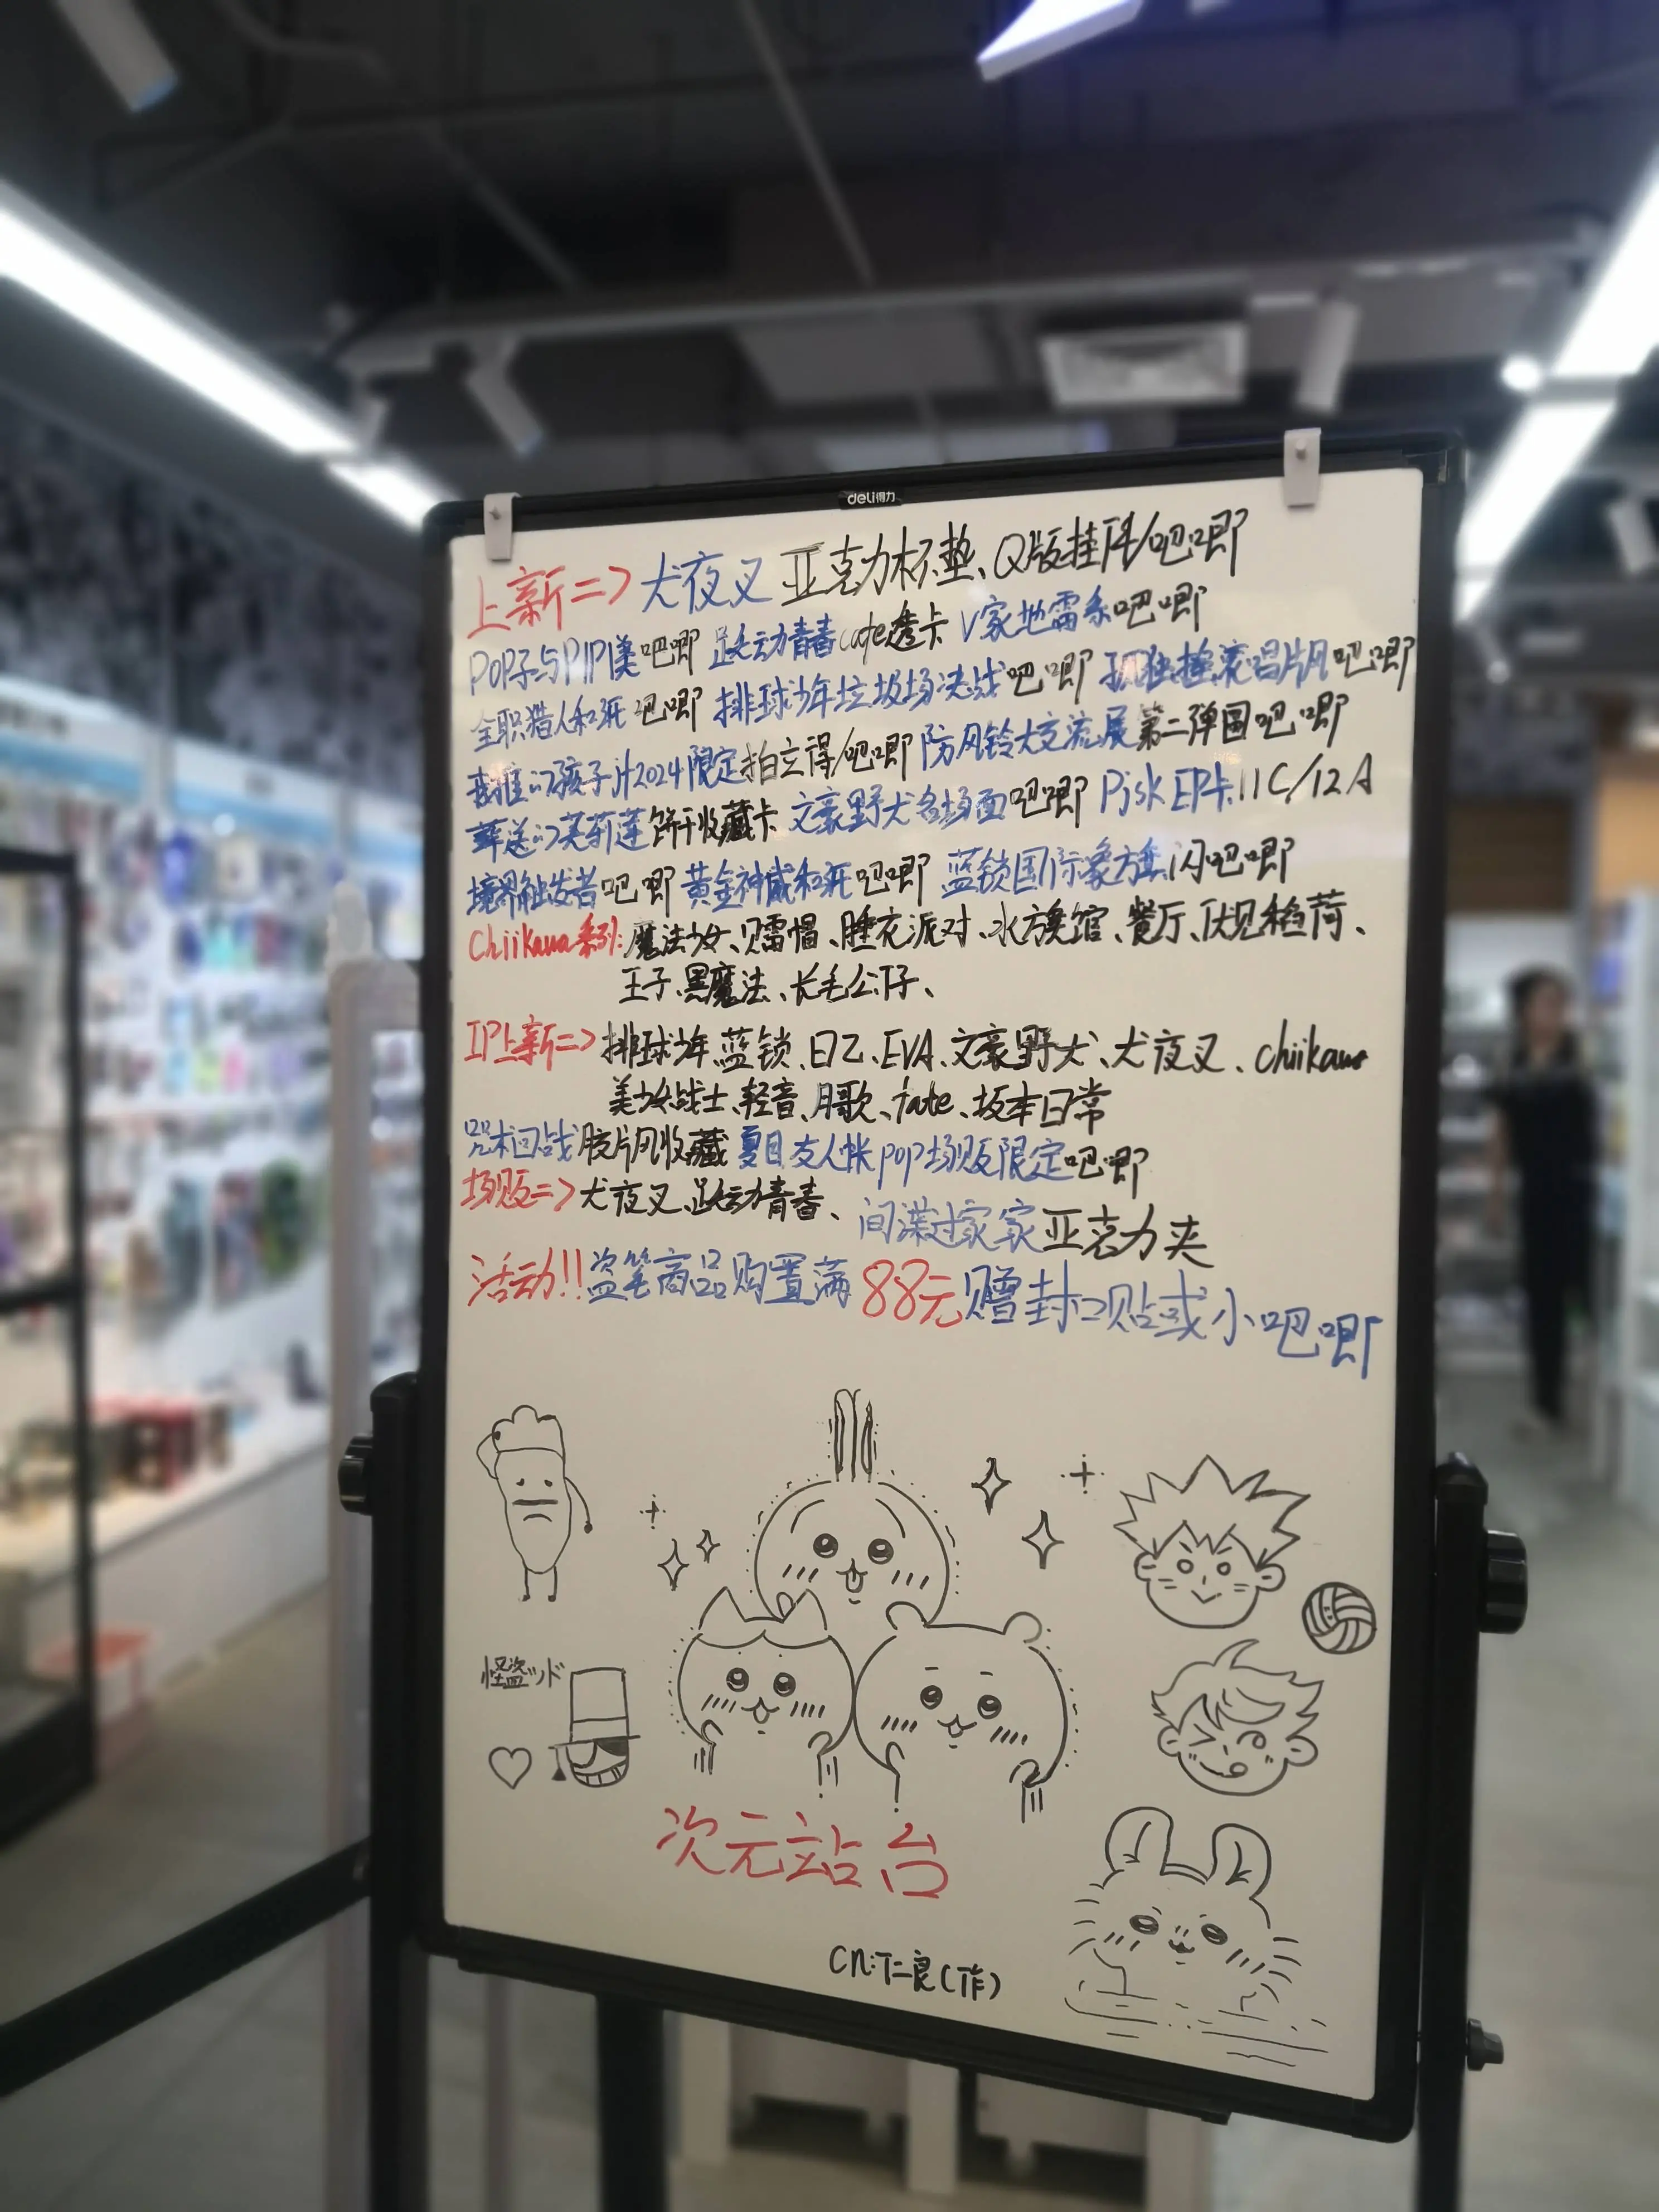 deli得力
上新=> 犬夜叉 亚克力杯垫、Q版挂件/吧唧
POP子与PIPI美吧唧 跃动青春cafe透卡 V家地雷系吧唧
全职猎人和玩吧唧 排球少年垃圾场决战吧唧 孤独摇滚唱片风吧唧
我推の孩子jf2024限定拍立得/吧唧 防风铃大交流展第二弹圆吧唧
葬送の芙莉莲饼干收藏卡 文豪野犬名场面吧唧 Pjsk EP卡 11C/12A
境界触发者吧唧 黄金神威和玩吧唧 蓝锁国际象方棋闪吧唧
Chiikawa系列: 魔法少女、贝雷帽、睡衣派对、水族馆、餐厅、伏见稻荷、
王子、黑魔法、长毛公仔、
IP上新=> 排球少年、蓝锁、EVA、文豪野犬、犬夜叉、chiikawa
美少女战士、轻音、月歌、fate、坂本日常
咒术回战胶片风收藏 夏目友人帐pop场贩限定吧唧
场贩=> 犬夜叉、跃动青春、间谍过家家亚克力夹
活动!! 盗笔商品购置满88元赠封口贴或小吧唧
怪盗ッド
次元站台
CN:仁良(作)